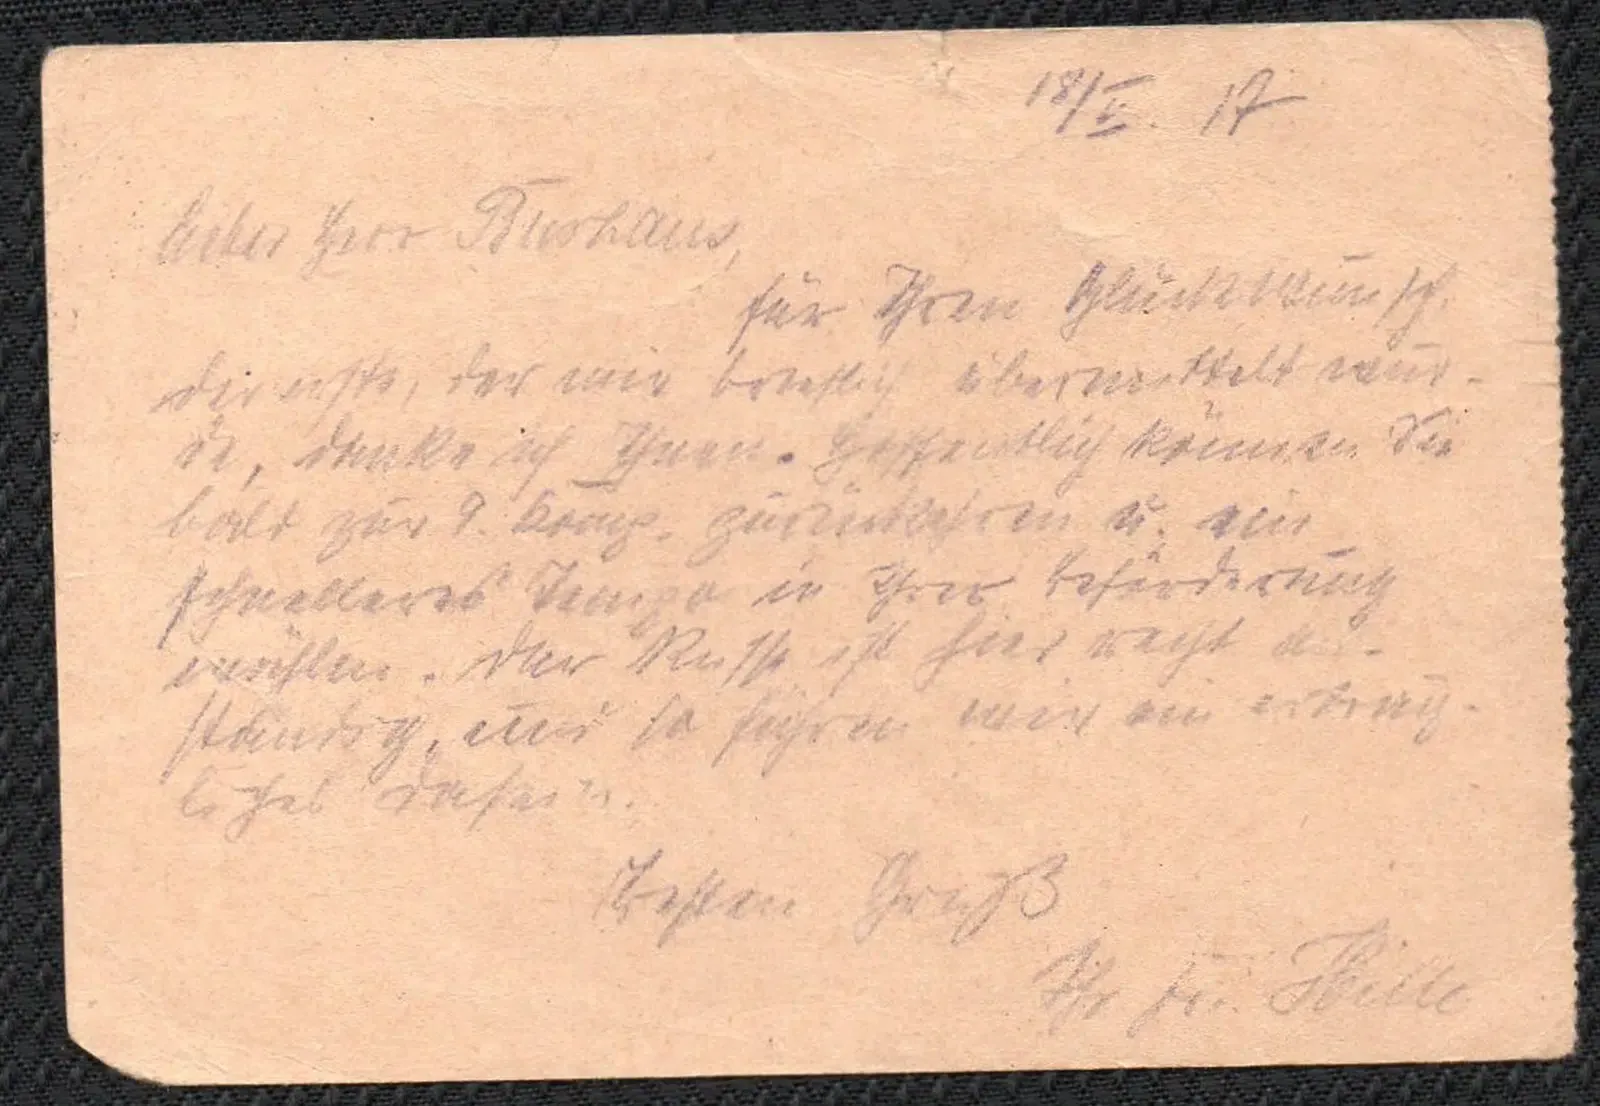 18/II. 17
Lieber Herr Burhaus,
für Ihren Glückwunsch
der mir brieflich übermittelt wur-
de, danke ich Ihnen. Hoffentlich können Sie
bald zur 9. Komp. zurückkehren u. ein
schnelleres Tempo in Ihrer Beförderung
wählen. Der Russe ist hier recht an-
ständig, und so führen wir ein erträg-
liches Dasein.
Besten Gruß
Ihr Hille